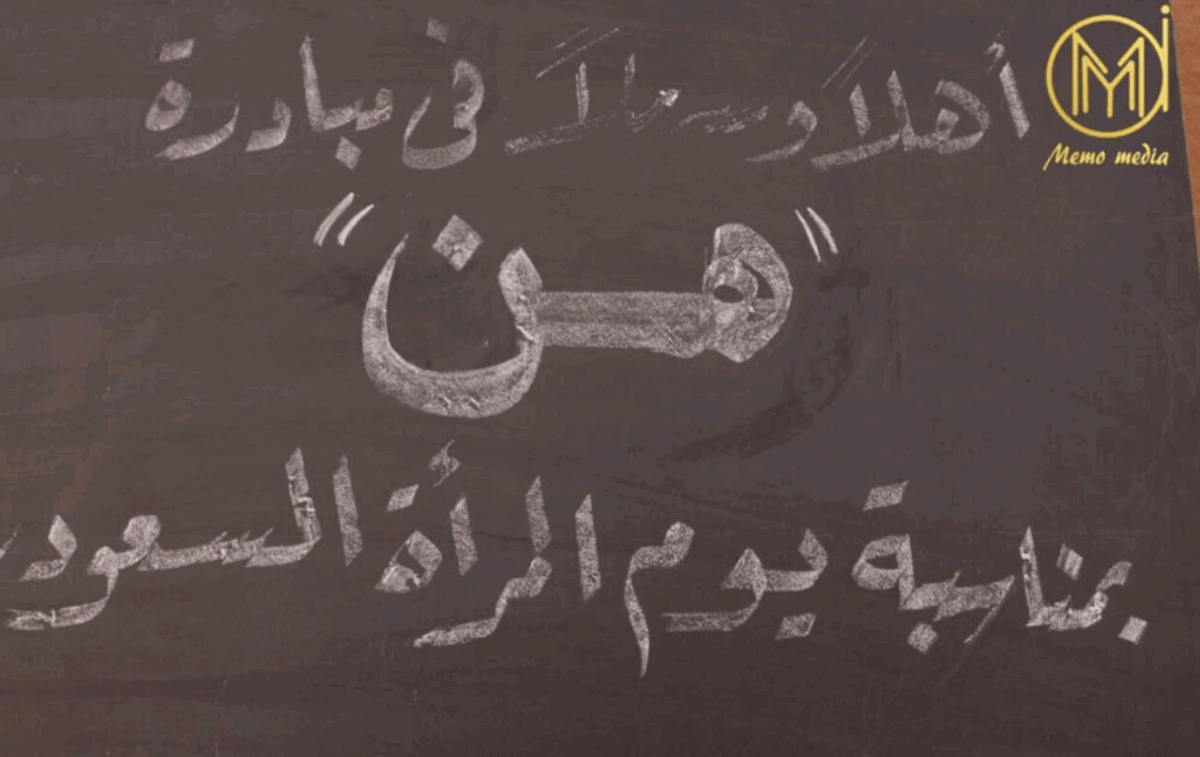 أهلاً وسهلاً في مبادرة
"هن"
بمناسبة يوم المرأة السعود
Memo media